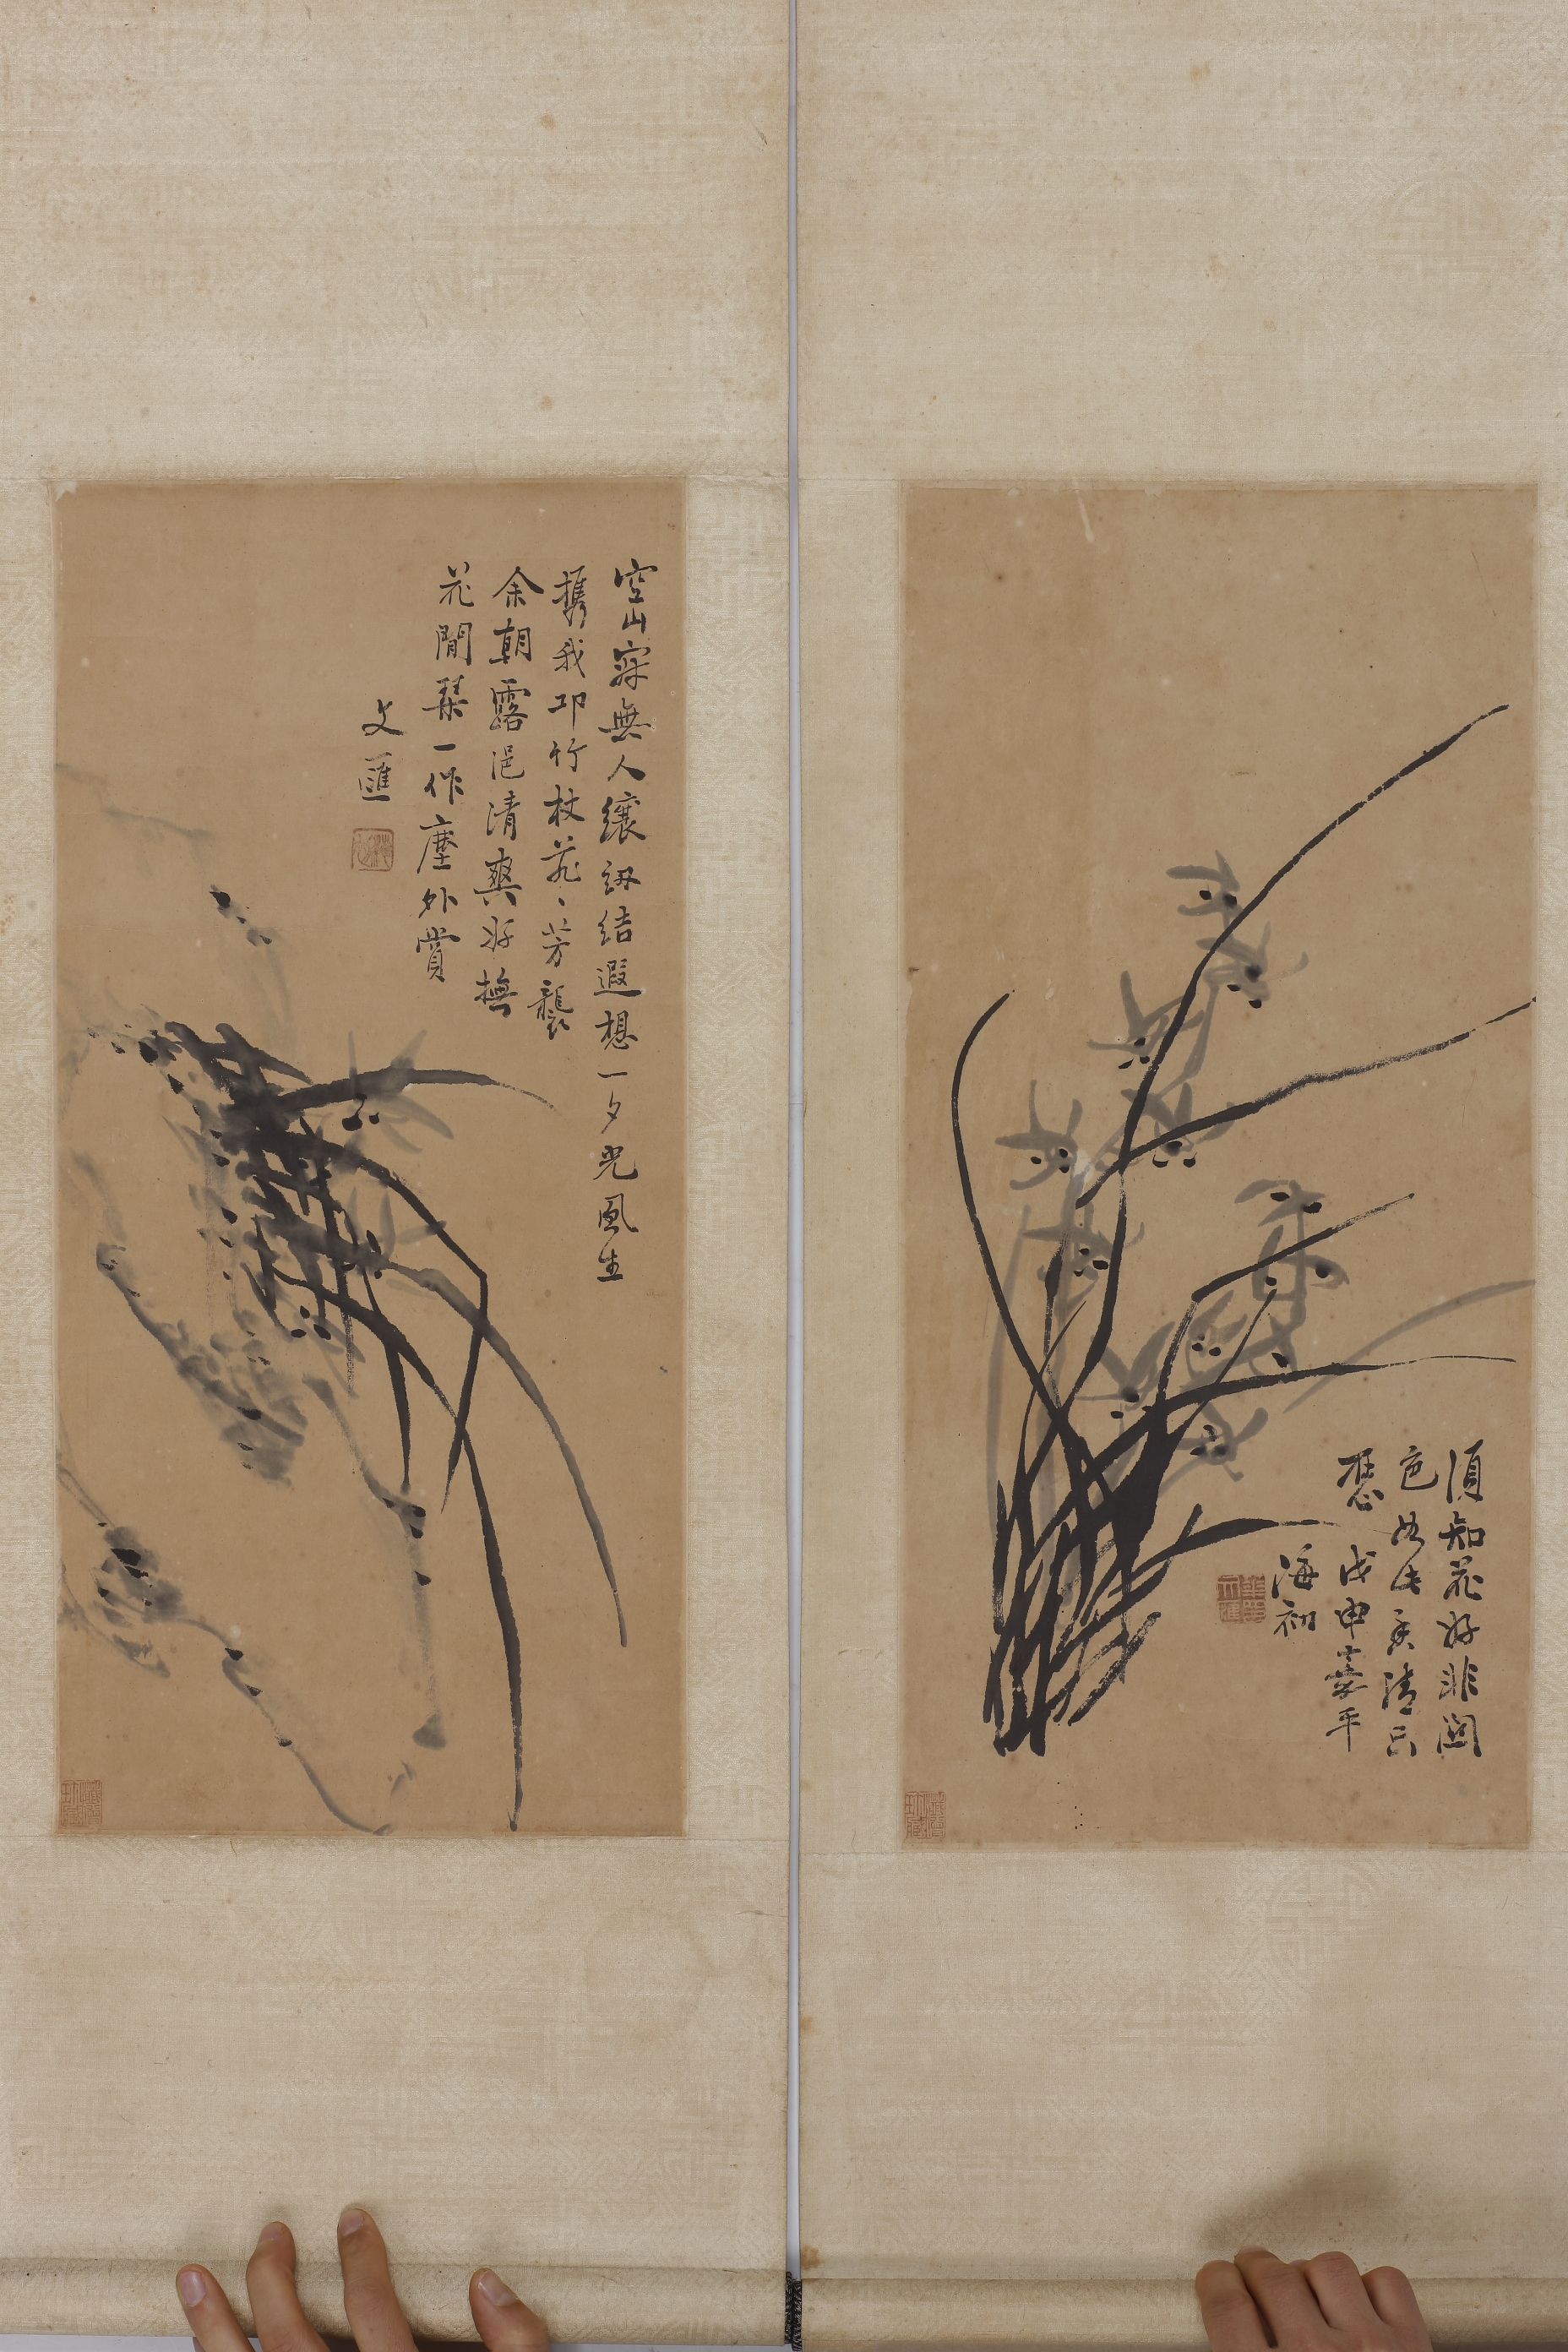 須知花好非関
色如此香清只
戊申嘉平
海初
空山寂無人纕紉結遐想一夕光風生
攜我邛竹杖菲〻芳襲
余朝露浥清爽好撫
花間琹一作塵外賞
文匯